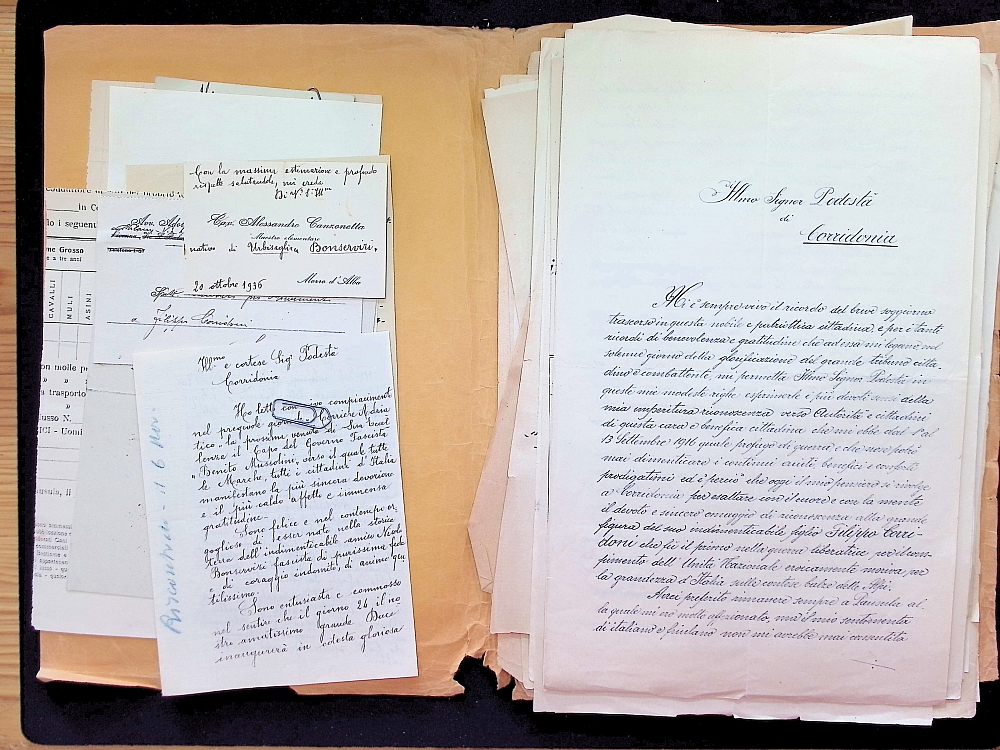 Con la massima estimazione e profondo
rispetto salutandola, mi creda
Di V. S. Ill.ma
Cav. Alessandro Canzonetta
Maestro elementare
nativo di Urbisaglia Bonservizi,
20 ottobre 1936
Morro d'Alba
in Co
lo i seguent
me Grosso
e a tre anni
CAVALLI
MULI
ASINI
on molle pe
a trasporto
lusso N.
ICI - Uomi
Avv. Ado
a Filippo Corridoni
Riscontrato - il 6 Nov.
Ill.mo e cortese Sig. Podestà
Corridonia
Ho letto con vivo compiacimento
nel pregiato giornale Corriere Adria
tico la prossima venuta di Sua Eccel
lenza il Capo del Governo Fascista
Benito Mussolini, verso il quale tutte
le Marche, tutti i cittadini d'Italia
manifestano la più sincera devozione
e il più caldo affetto e immensa
gratitudine.
Sono felice e nel contempo or
goglioso di esser nato nella storica
terra dell'indimenticabile amico Nicola
Bonservizi fascista di purissima fede
di coraggio indomito, di animo gen
tilissimo.
Sono entusiasta e commosso
nel sentire che il giorno 24 il no
stro amatissimo grande Duce
inaugurerà in codesta gloriosa
Illmo Signor Podestà
di
Corridonia
Mi è sempre vivo il ricordo del breve soggiorno
trascorso in questa nobile e patriottica cittadina, e per i tanti
ricordi di benevolenza e gratitudine che ad essa mi legano nel
solenne giorno della glorificazione del grande tribuno citta-
dino e combattente, mi permetta Illmo Signor Podestà in
queste mie modeste righe esprimerle i più devoti sensi della
mia imperitura riconoscenza verso Autorità e cittadini
di questa cara e benefica cittadina che mi ebbe dal 1° al
13 Settembre 1916 quale profugo di guerra e che non potrò
mai dimenticare i continui aiuti, benefici e conforti
prodigatimi ed è perciò che oggi il mio pensiero si rivolge
a Corridonia per esaltare con il cuore e con la mente
il devoto e sincero omaggio di riconoscenza alla grande
figura del suo indimenticabile figlio Filippo Corri-
doni che fù il primo nella guerra liberatrice per il com-
pimento dell'Unità Nazionale eroicamente moriva, per
la grandezza d'Italia sulle contese balze delle Alpi.
Avrei preferito rimanere sempre a Pausula al-
la quale mi ero molto affezionato, ma il mio sentimento
di italiano e friulano non mi avrebbe mai consentito